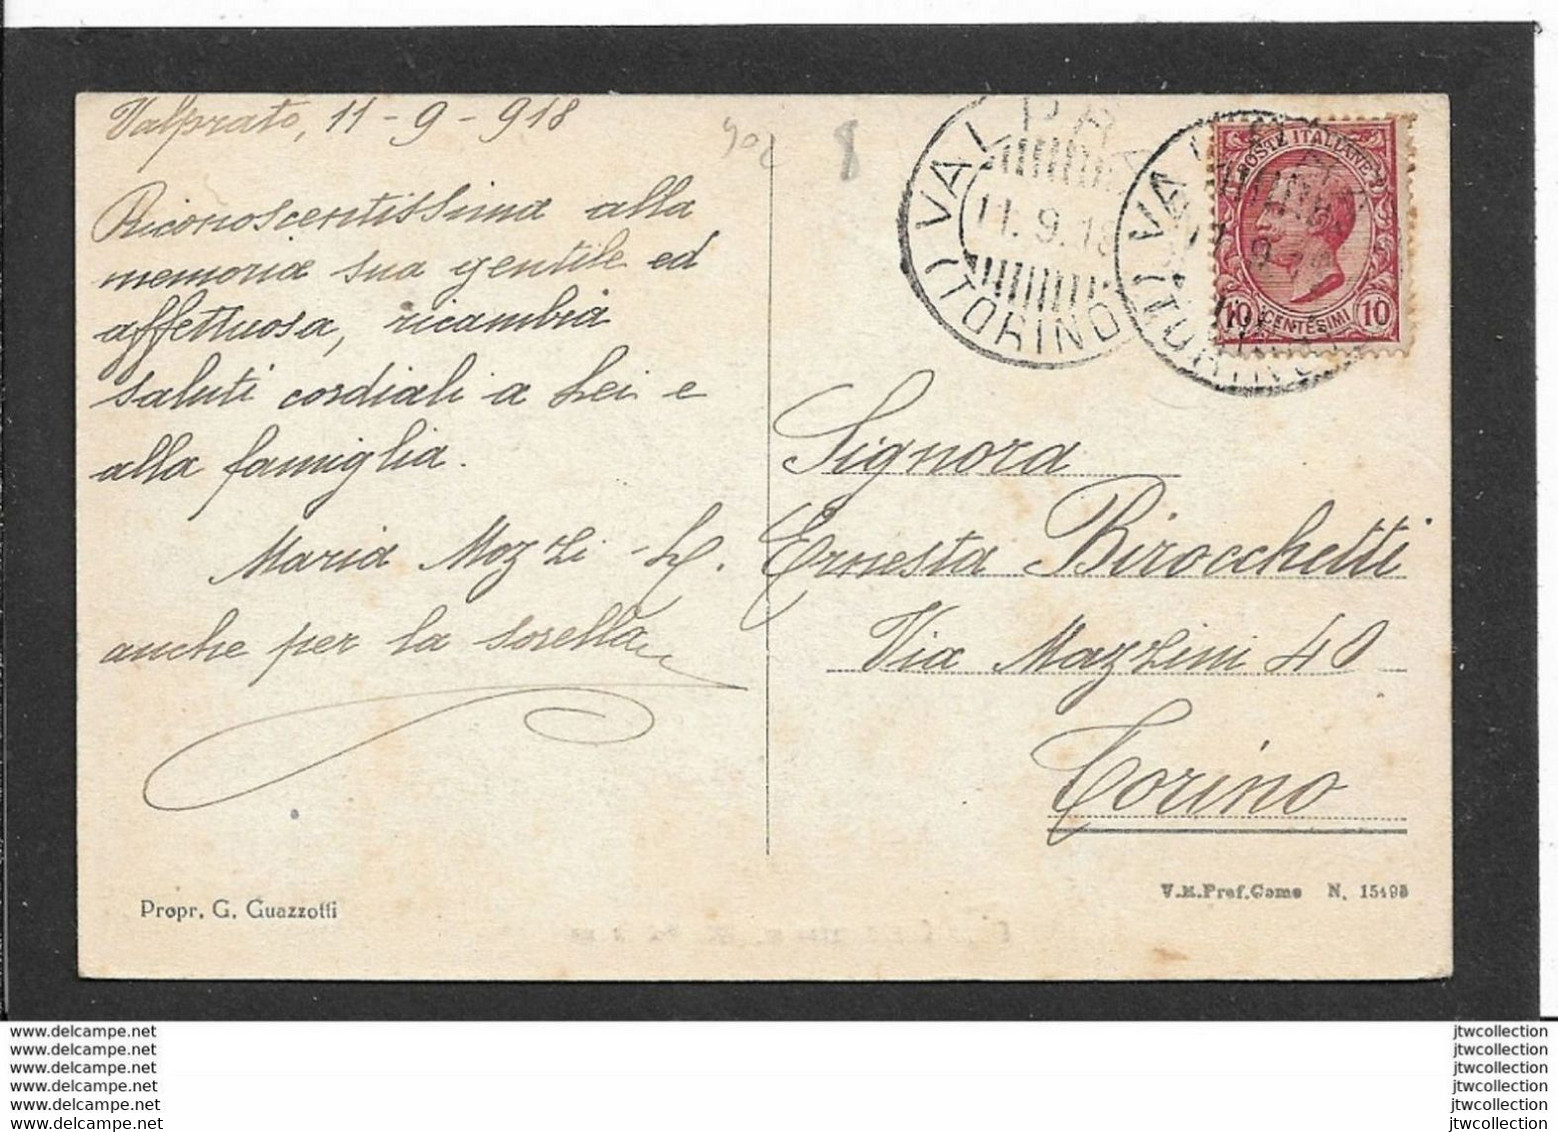 Valprato, 11-9-918
Riconoscentissima alla
memoria sua gentile ed
affettuosa, ricambia
saluti cordiali a Lei e
alla famiglia.
Maria Mozzi - L.
anche per la sorella
8
VALPRA
11.9.18
(TORINO)
POSTE ITALIANE
10 CENTESIMI 10
(TORINO)
Signora
Ernesta Birocchetti
Via Mazzini 40
Torino
Propr. G. Guazzotti
V.E.Pref.Como N. 15495
www.delcampe.net
www.delcampe.net
www.delcampe.net
www.delcampe.net
www.delcampe.net
www.delcampe.net
jtwcollection
jtwcollection
jtwcollection
jtwcollection
jtwcollection
jtwcollection